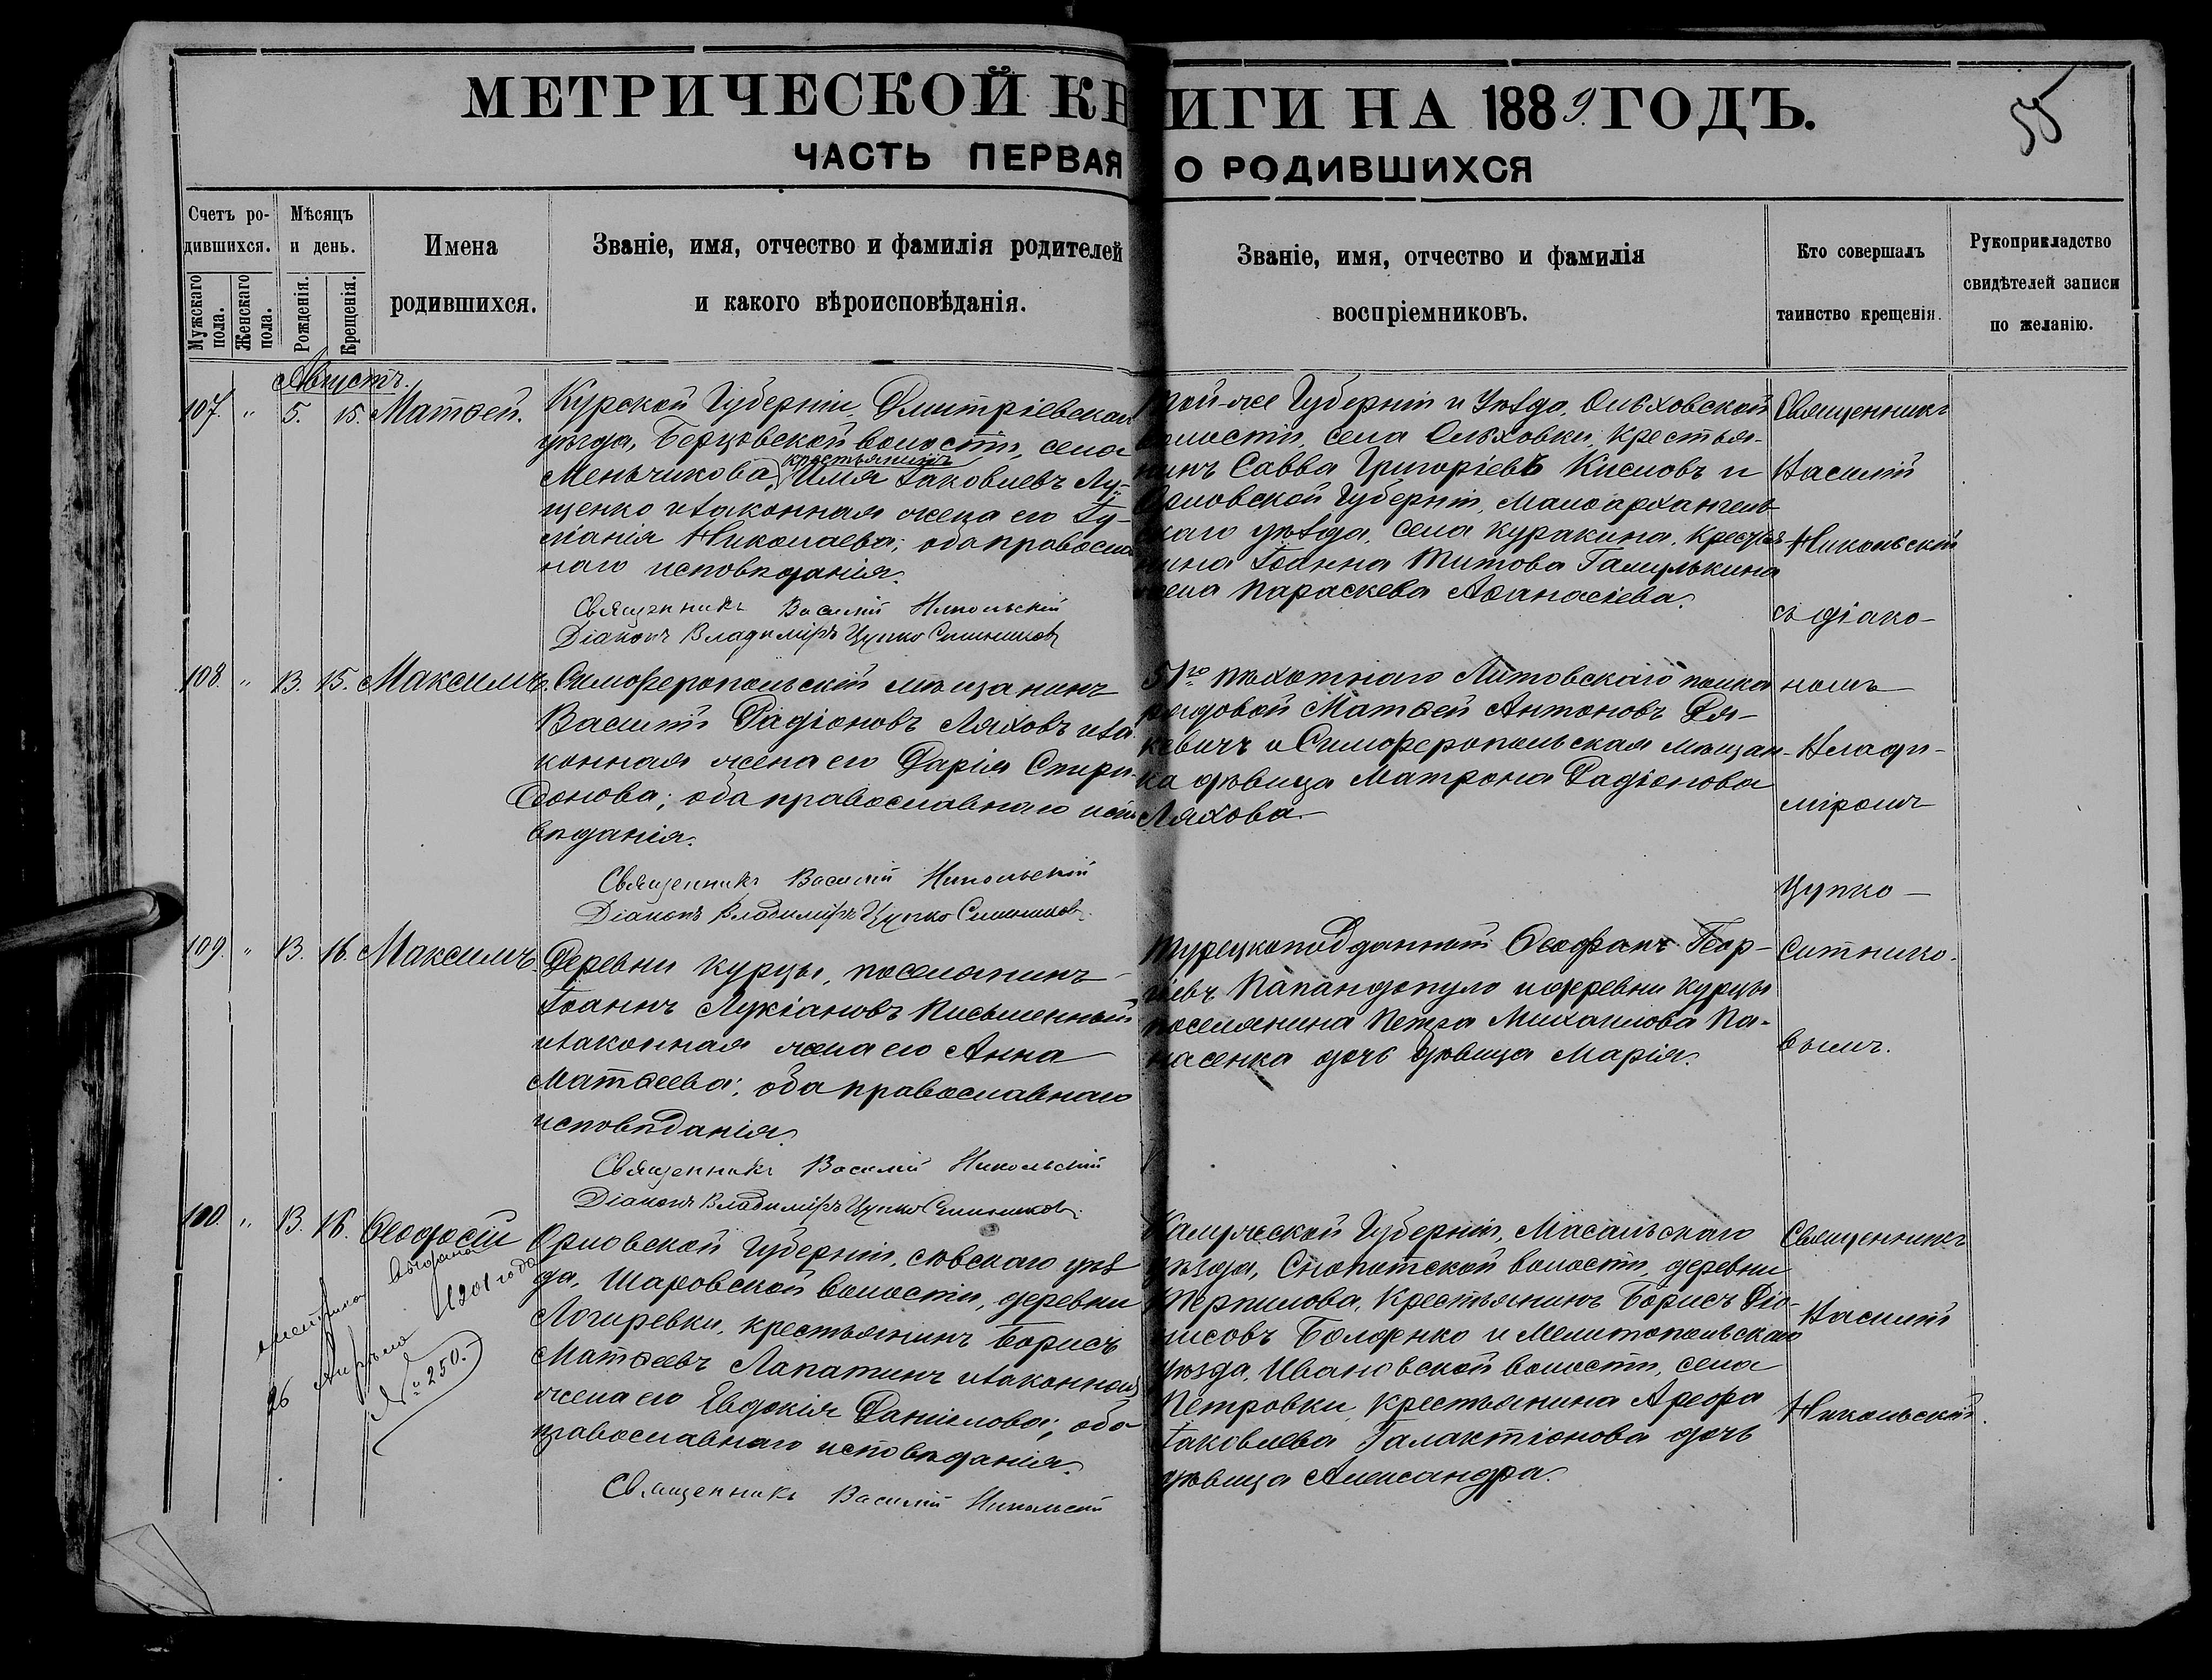 МЕТРИЧЕСКОЙ КНИГИ НА 1889 ГОДЪ.
55
ЧАСТЬ ПЕРВАЯ О РОДИВШИХСЯ
Счетъ ро-
дившихся.
Мужскаго пола.
Женскаго пола.
Мѣсяцъ
и день.
Рожденія.
Крещенія.
Имена
родившихся.
Званіе, имя, отчество и фамилія родителей
и какого вѣроисповѣданія.
Званіе, имя, отчество и фамилія
воспріемниковъ.
Кто совершалъ
таинство крещенія.
Рукоприкладство
свидѣтелей записи
по желанію.
Августъ.
107. " 5. 15. Матѳей.
Курской Губерніи, Дмитріевскаго
уѣзда, волости, села
Меньчикова, крестьянинъ Илія Іаковлевъ Лу-
щенко и законная жена его Іу-
ліанія Николаева; оба православ
наго исповѣданія.
Священникъ Василій Никольскій
Діаконъ Владиміръ Цупко Ситниковъ
той-же Губерніи и Уѣзда, Ольховской
волости, села Ольховки, крестья-
нинъ Савва Григоріевъ Кисловъ и
Орловской Губерніи, Малоархангель
скаго уѣзда, села Куракина, крестья
нина Іоанна Титова Галулькина
жена Параскева Аѳанасіева.
Священникъ
Василій
Никольскій
съ діако-
номъ
Влади-
міромъ
Цупко-
Ситнико-
вымъ.
108. " 13. 15. Максимъ.
Симферопольскій мѣщанинъ
Василій Радіоновъ Ляховъ и за
конная жена его Дарія Спири
донова; оба православнаго испо
вѣданія.
Священникъ Василій Никольскій
Діаконъ Владиміръ Цупко Ситниковъ.
51го пѣхотнаго Литовскаго полка
рядовой Матѳей Антоновъ Ля-
кевичъ и Симферопольская мѣщан-
ка дѣвица Матрона Радіонова
Ляхова.
109. " 13. 16. Максимъ.
Деревни Курцы, поселянинъ
Іоаннъ Лукіановъ Письменный
и законная жена его Анна
Матѳеева; оба православнаго
исповѣданія.
Священникъ Василій Никольскій
Діаконъ Владиміръ Цупко Ситниковъ.
Турецкоподданный Ѳеофанъ Геор-
гіевъ Папандопуло и деревни Курцы
поселянина Петра Михаилова Па-
насенка дочь дѣвица Марія.
100. " 13. 16. Ѳеодосій
метрика выдана
26 Апрѣля 1201 года
№ 250.
Орловской Губерніи, Сѣвскаго уѣз
да, Шаровской волости, деревни
Логиревки, крестьянинъ Борисъ
Матѳеевъ Лапатинъ и законная
жена его Евдокія Даніилова; оба
православнаго исповѣданія.
Священникъ Василій Никольскій
Калужской Губерніи, Масальскаго
уѣзда, Снопотской волости, деревни
Терпилова, крестьянинъ Борисъ Діо-
нисовъ Болфенко и Мелитопольскаго
уѣзда, Ивановской волости, села
Петровки, крестьянина Ареѳа
Іаковлева Галактіонова дочь
дѣвица Александра.
Священникъ
Василій
Никольскій.